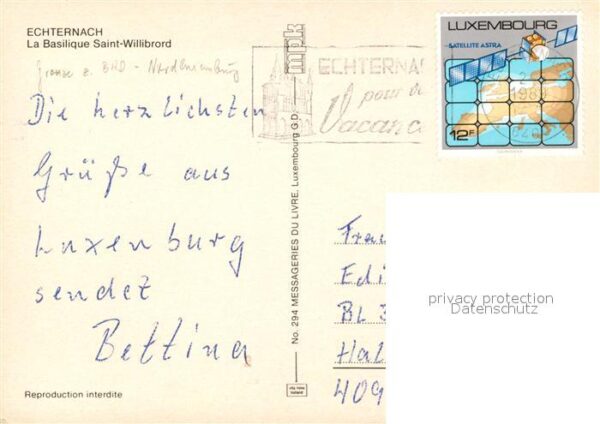 ECHTERNACH
La Basilique Saint-Willibrord
Grenze z. BRD -
Die herzlichsten
Grüße aus
Luxenburg
sendet
Bettina
Reproduction interdite
mpk
No. 294 MESSAGERIES DU LIVRE, Luxembourg G.D.
ECHTERNA
pour
Vacanc
LUXEMBOURG
SATELLITE ASTRA
12F
Frau
Edi
BL 3
Hal
409
privacy protection
Datenschutz